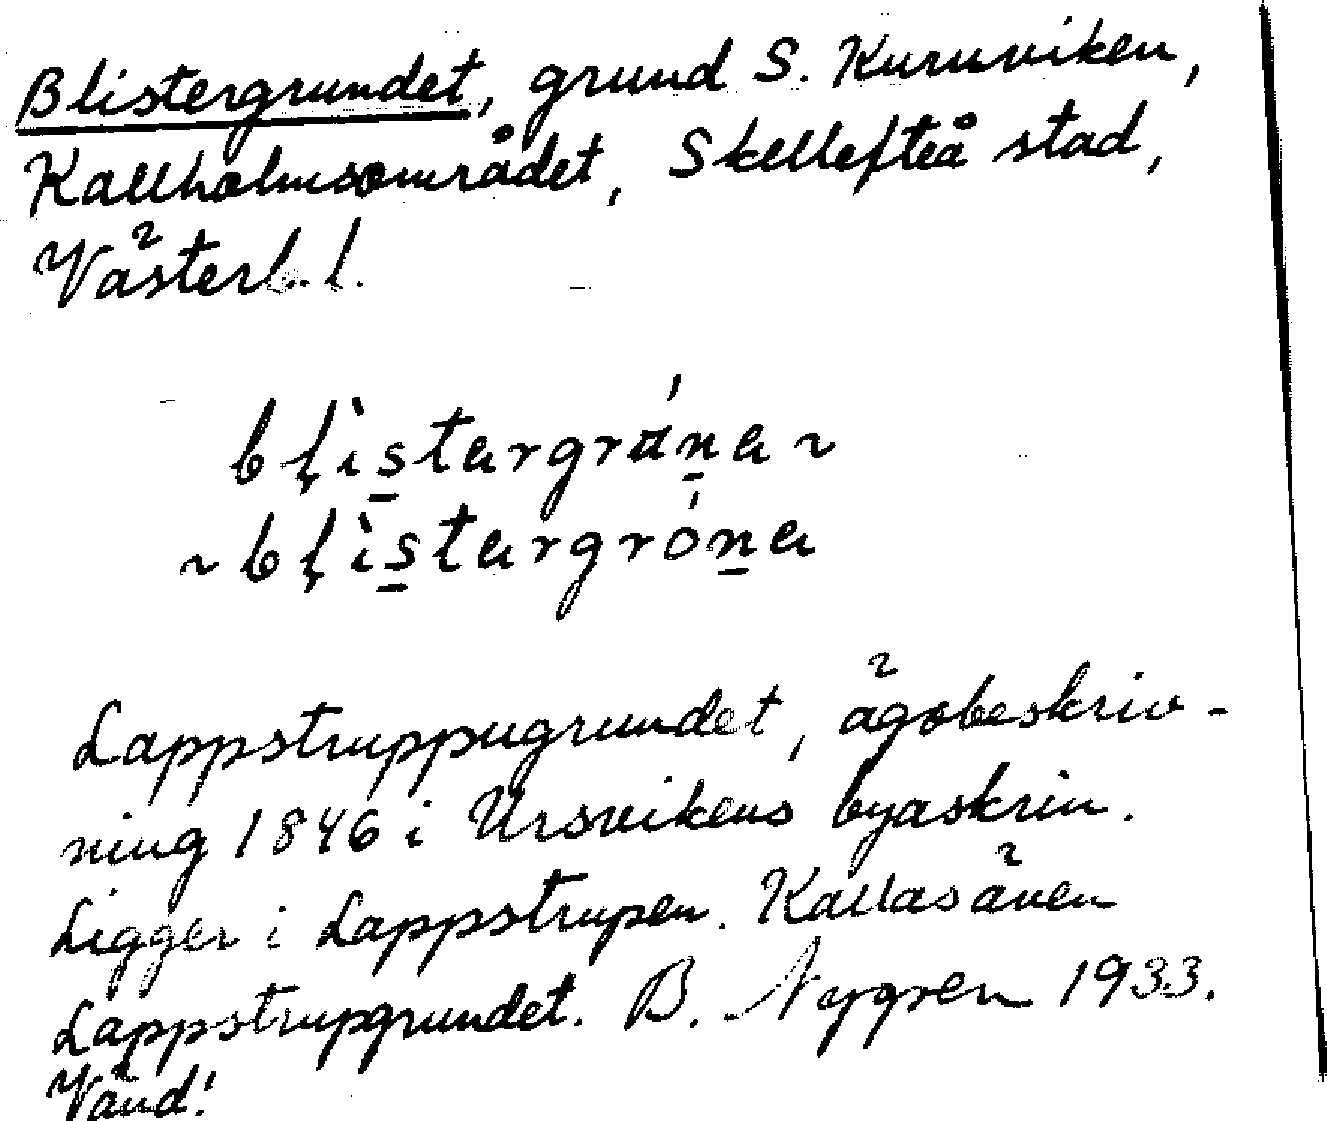 Blistergrundet, grund S. Kuruviken,
Kallholmsområdet, Skellefteå stad,
Västerb. l.
bḷìs̱targráṉa ~
~ bḷìs̱targróṉa
Lappstruppugrundet, ägobeskriv-
ning 1846 i Ursvikens byaskrin.
Ligger i Lappstrupen. Kallas även
Lappstrupgrundet. B. Nygren 1933.
Vänd!